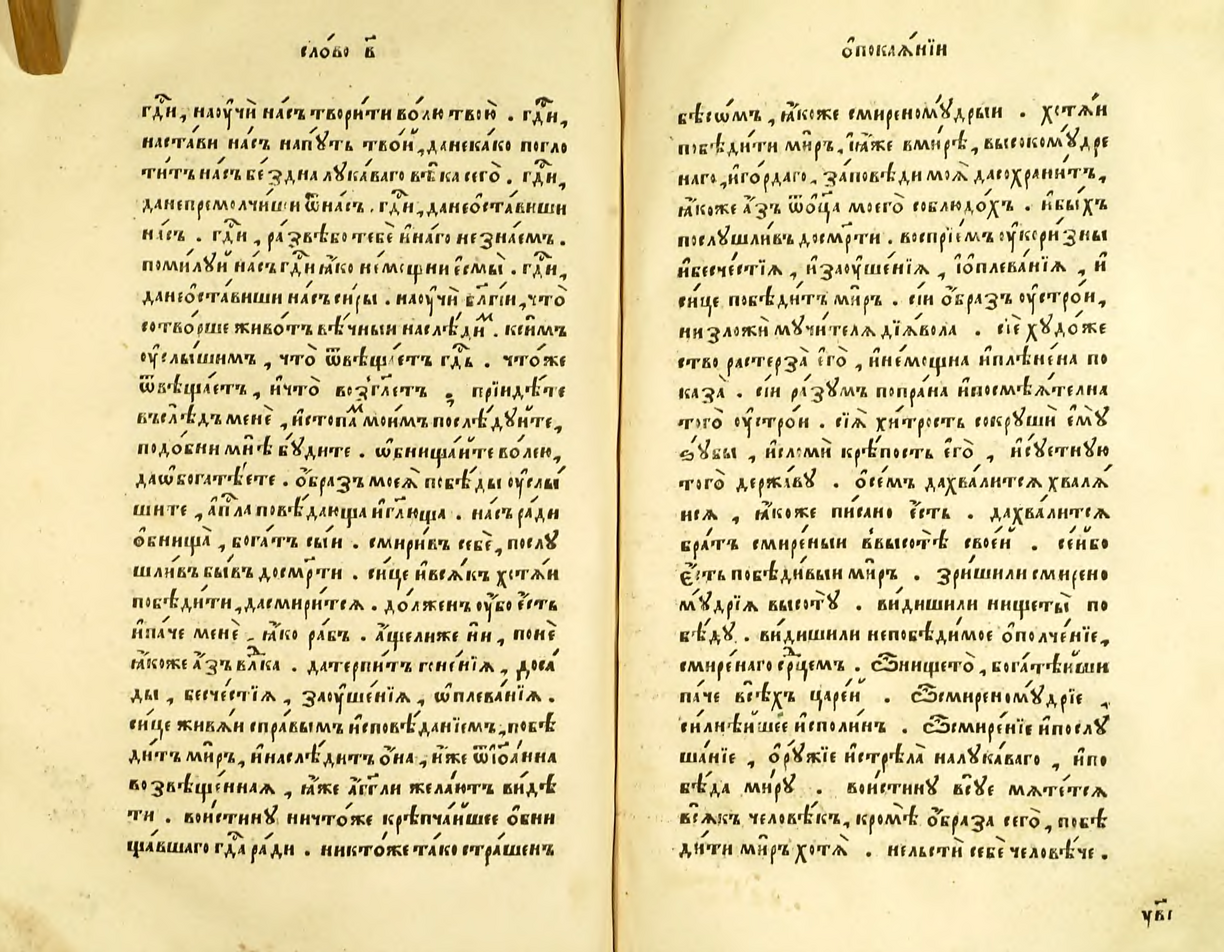 сло́во в҃
гдⷭ҇и, наоу҆чѝ на́съ твори́ти во́лю твою̀ . гдⷭ҇и,
наста́ви на́съ напꙋ́ть тво́й, данека́ко погло
ти́тъ на́съ бе́здна лꙋка́ваго вѣ́ка сего̀ . гдⷭ҇и,
данепремолчи́ши ѿна́съ . гдⷭ҇и, данеѡ҆ста́виши
на́съ . гдⷭ҇и, ра́звѣбо тебѐ и҆на́го незна́емъ .
поми́лꙋй на́съ гдⷭ҇и ꙗ҆́ко не́мощни є҆смы̀ . гдⷭ҇и,
данеѡ҆ста́виши на́съ си́ры . наоу҆чѝ бл҃гі́и, что̀
сотво́рше живо́тъ вѣ́чныи наслѣ́димъ . кси́мъ
оу҆слы́шимъ , что̀ ѿвѣща́етъ гдⷭ҇ь . что́же
ѿвѣща́етъ , и҆что̀ возгл҃етъ ; прїидѣ́те
въслѣ́дъ менѐ , и҆стопа́мъ мои́мъ послѣ́дꙋйте,
подо́бни мнѣ̀ бꙋ́дите . ѡ҆бнища́йте во́лею,
даѡ҆богатѣ́ете . ѻ҆́бразъ моеѧ̀ побѣ́ды оу҆слы́
шите , а҆пⷭ҇ла повѣ́дающа и҆гл҃юща . на́съ ра́ди
ѻ҆бнища̀ , бога́тъ сы́и . смири́въ себѐ, послꙋ́
шливъ бы́въ досмр҃ти . си́це и҆вся́къ хотѧ́и
побѣ́дити, дасмири́тсѧ . до́лженъ оу҆́бо є҆́сть
и҆па́че менѐ . ꙗ҆́ко ра́бъ . а҆́щелиже нѝ , понѐ
ꙗ҆́коже а҆́зъ влⷣка . датерпи́тъ гоне́нїѧ , доса́
ды , бесче́стїѧ , заоуше́нїѧ , ѡ҆плева́нїѧ .
си́це живѧ́и спра́вымъ и҆сповѣ́данїемъ, побѣ
ди́тъ ми́ръ, и҆наслѣ́дитъ ѻ҆́на , и҆́же ѿїѡа́нна
возвѣще́ннаѧ , ꙗ҆́же а҆́гг҃ли жела́ютъ ви́дѣ
ти . вои́стинꙋ ничто́же крѣпча́йшее ѻ҆бни
ща́вшаго гдⷭ҇а ра́ди . никто́же та́ко стра́шенъ
ѻ҆покаѧ́нїи
бѣсѡ́мъ , ꙗ҆́коже смиреномꙋ́дрыи . хотѧ́и
побѣ́дити ми́ръ, ꙗ҆́же вми́рѣ, высокомꙋ́дре
наго, и҆го́рдаго, за́повѣди моѧ̀ дасохрани́тъ,
ꙗ҆́коже а҆́зъ ѿоц҃а̀ моего̀ соблюдо́хъ . и҆бы́хъ
послꙋ́шливъ досмр҃ти . воспрїе́мъ оу҆кори́зны
и҆бесче́стїѧ , и҆заоуше́нїѧ , ї҆ѻплева́нїѧ , и҆
си́це побѣ́дитъ ми́ръ . сі́и ѻ҆́бразъ оу҆стро́и,
низложѝ мꙋчи́телѧ дїѧ́вола . сїѐ хꙋдо́же
ство растерза̀ є҆го̀ , и҆не́мощна и҆плѣне́на по
каза̀ . сі́и ра́зꙋмъ попра́на и҆посмѣѧ́телна
того̀ оу҆стро́и . сїѧ̀ хи́трость сокрꙋшѝ є҆мꙋ̀
зꙋ́бы , и҆сломѝ крѣ́пость є҆го̀ , и҆сꙋ́етнꙋю
того̀ держа́вꙋ . ѻ҆се́мъ дахва́литсѧ хвалѧ́
исѧ , ꙗ҆́коже пи́сано є҆́сть . дахва́литсѧ
бра́тъ смире́ныи ввысотѣ̀ свое́й . се́йбо
є҆́сть побѣди́выи ми́ръ . зри́шили смирено
мꙋ́дрїѧ высотꙋ̀ . ви́дишили нищеты̀ по
бѣ́дꙋ . ви́дишили непобѣди́мое ѻ҆полче́нїе,
смире́наго ср҃цемъ . Ѽнището̀, богатѣ́йши
па́че всѣ́хъ царе́й . Ѽсмиреномꙋ́дрїе ,
силнѣ́йшее и҆споли́нъ . Ѽсмире́нїе и҆послꙋ
ша́нїе , ѻ҆рꙋ́жїе и҆стрѣла̀ налꙋка́ваго , и҆по
бѣ́да ми́рꙋ . вои́стинꙋ всꙋ́е мѧте́тсѧ
всѧ́къ человѣ́къ, кромѣ̀ ѻ҆́браза сего̀, побѣ
ди́ти ми́ръ хотѧ̀ . нельстѝ себѐ человѣ́че .